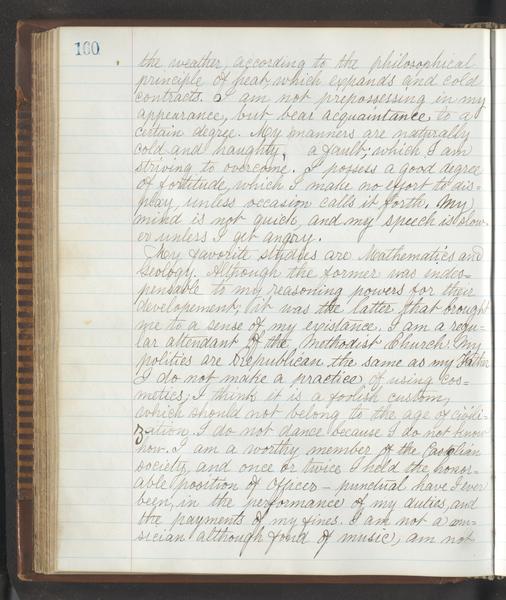 100
the weather, according to the philosophical
principle of heat, which expands and cold
contracts. I am not prepossessing in my
appearance, but bear acquaintance to a
certain degree. My manners are naturally
cold and haughty, a fault, which I am
striving to overcome. I possess a good degree
of fortitude, which I make no effort to dis=
play, unless occasion calls it forth. My
mind is not quick, and my speech is slow-
er unless I get angry.
My favorite studies are Mathematics and
Geology. Although the former was indes-
pensable to my reasoning powers for their
developement, it was the latter that brought
me to a sense of my existance. I am a regu-
lar attendant of the Methodist Church. My
politics are Republican the same as my Father
I do not make a practice of using cos=
metics, I think it is a foolish custom,
which should not belong to the age of civili-
zation. I do not dance because I do not know
how. I am a worthy member of the Castalian
society, and once or twice I held the honor-
able position of officer – punctual have I ever
been, in the performance of my duties, and
the payments of my fines. I am not a mu=
sician although fond of music, am not